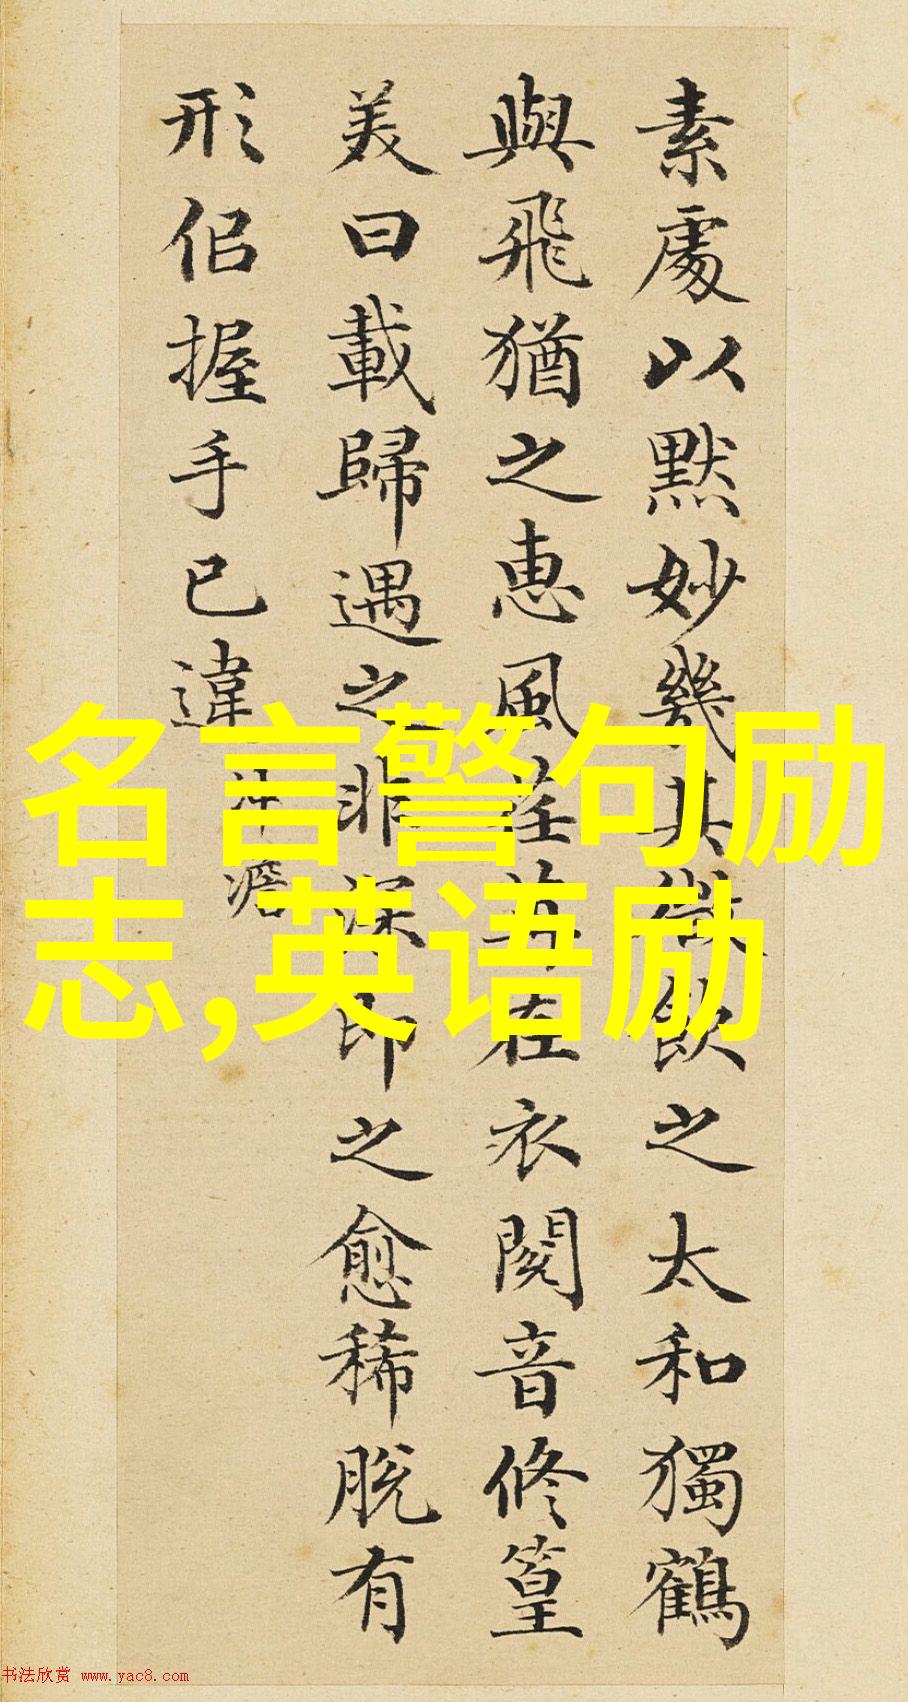 素處以默妙幾其微飲之太和獨鶴
與飛猶之惠風荏苒在衣閱音修篁
美曰載歸遇之非深即之愈稀脫有
形似握手已違
沖澹
名言警句励
志,英语励
书法欣赏 www.yac8.com